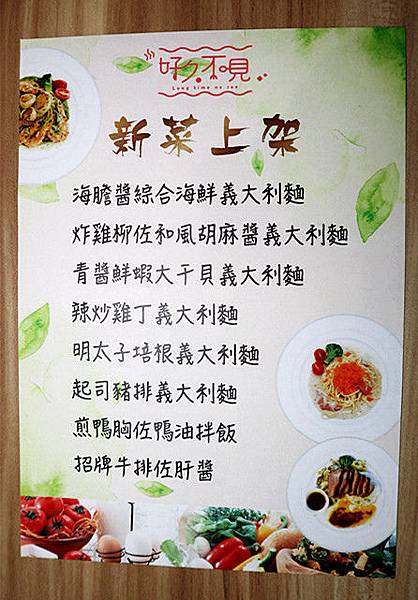 好久不見
Long time no see
新菜上架
海膽醬綜合海鮮義大利麵
炸雞柳佐和風胡麻醬義大利麵
青醬鮮蝦大干貝義大利麵
辣炒雞丁義大利麵
明太子培根義大利麵
起司豬排義大利麵
煎鴨胸佐鴨油拌飯
招牌牛排佐肝醬